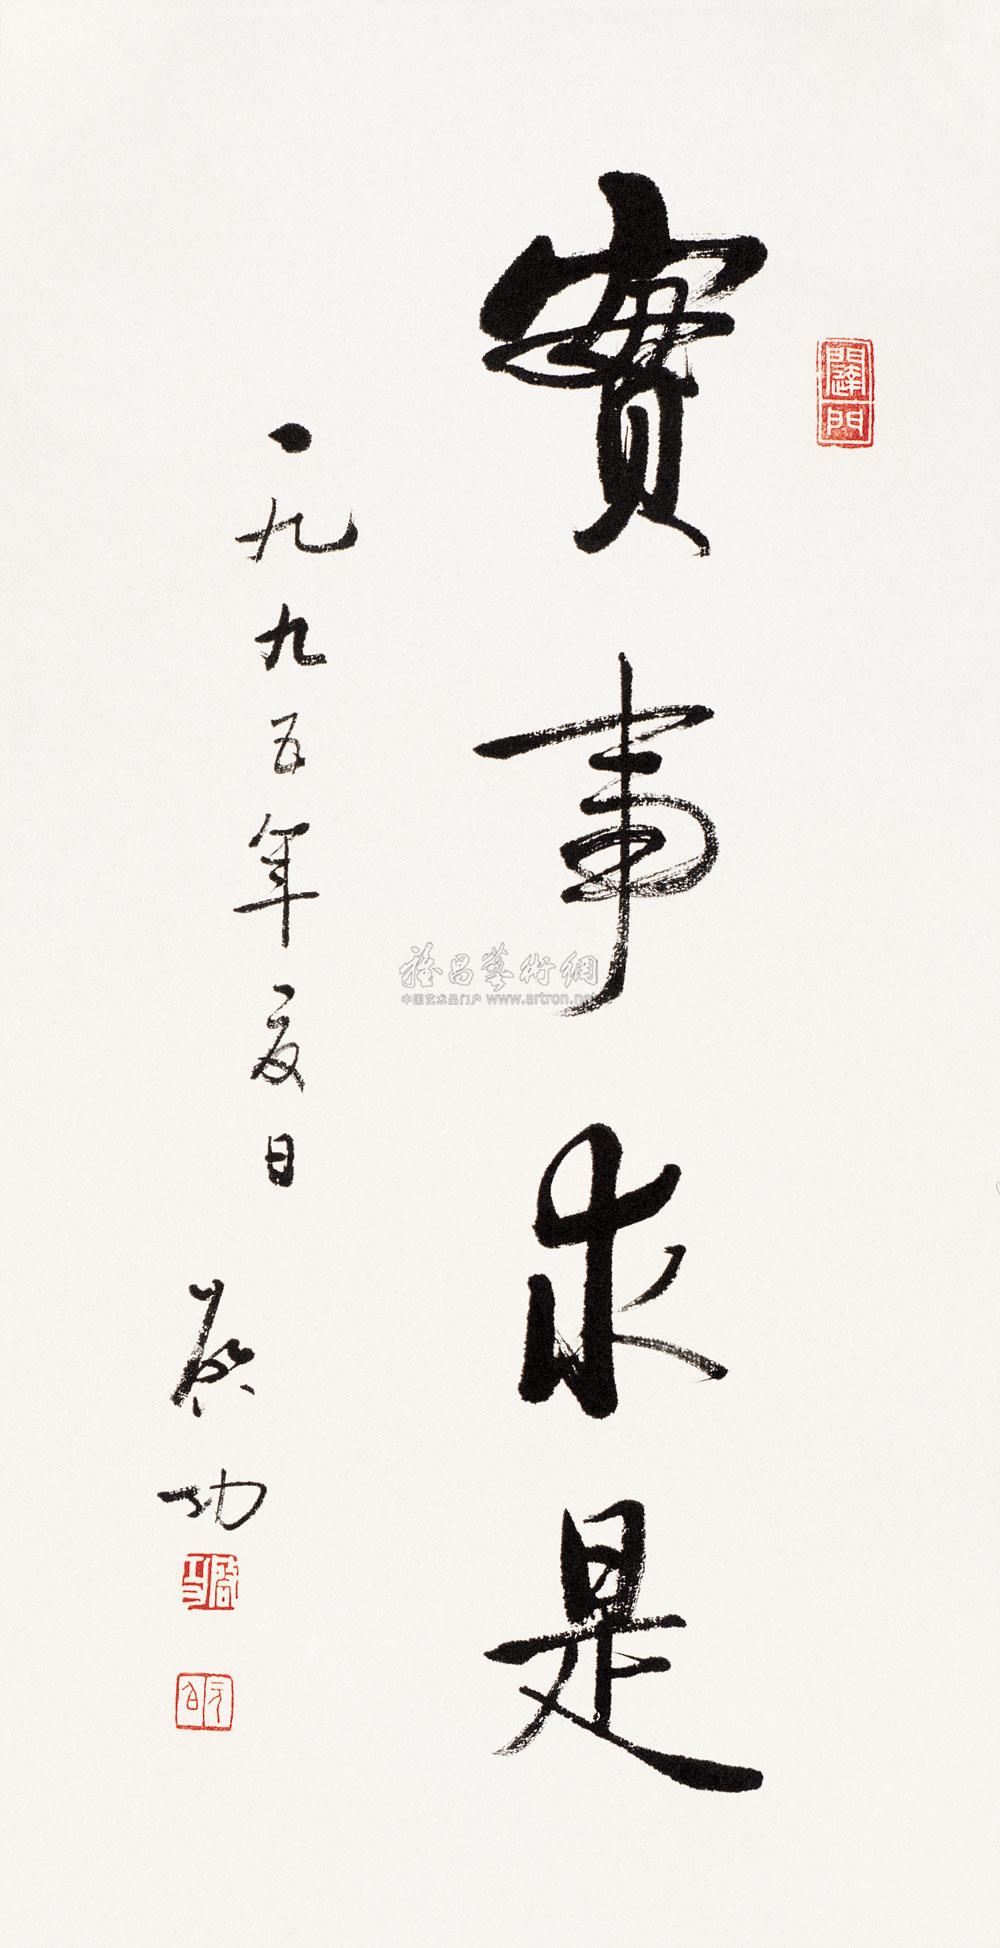 實事求是
一九九五年夏日
啟功
雅昌藝術網
中国艺术品门户 www.artron.net